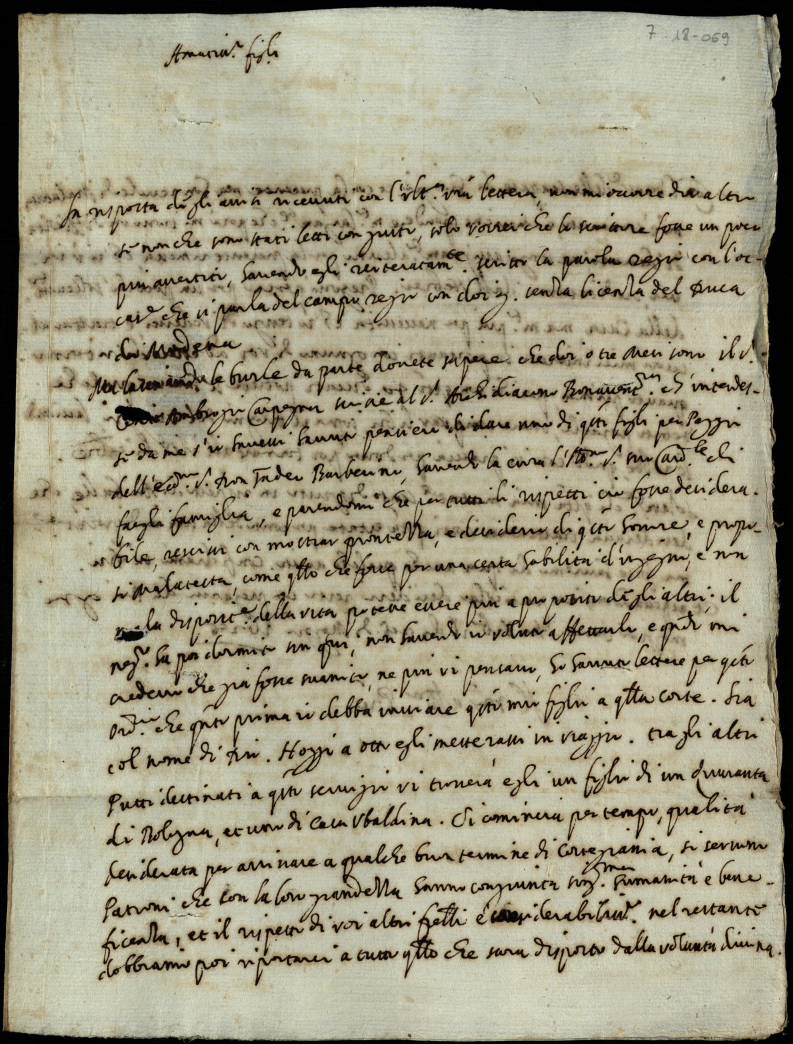 7-18-069
Amatis.mi figli
In risposta degli avvisi ricevuti con l'ult.ma v̄ra lettera, non mi occorre dir altro
se non che sono stati letti con gusto, solo vorrei che lo scrittore fosse un poco
più avertito, havendo egli reiteratam.te scritto la parola regio con l'oc-
cas.e che si parla del campo regio con doi g. senza licenza del Duca
di Modena
Ma le burle da parte dovete sapere che doi o tre mesi sono il S.r
Ambrogio Carpegna scrisse al S.r Archidiacono Bonavent.ra ch'intendes-
se da me s'io havessi havuto pensiero di dare uno di q.sti figli per Paggio
dell'Ecc.mo S.r Don Tadeo Barberino, havendo la cura l'Ill.mo S.r suo Card.le di
fargli famiglia, e parendomi che per tutti li rispetti ciò fosse desidera-
bile, rescrissi con mostrar prontezza, e desiderio di q.sto honore, e propo-
si Malatesta, come q.llo che forse per una certa habilità d'ingegno, e non
la disposit.e della vita poteva essere più a proposito degli altri; il
neg.o ha poi dormito sin qui, non havendo io voluto affettarlo, e q.ndo mi
credevo che già fosse svanito, ne più vi pensavo, ho havuto lettere per q.sto
ord.rio che q.nto prima si debba inviare q.sto mio figlio a q.lla corte. Sia
col nome di Dio. Hoggi a otto egli metterassi in viaggio. tra gli altri
Putti destinati a q.sto servigio vi troverà egli un figlio di un Quaranta
di Bologna, et uno di Casa Ubaldina. Si comincia per tempo, qualità
desiderata per arrivare a qualche buon termine di cortegiania, si servono
Patroni che con la lor grandezza hanno congiunta sing.ma humanità e bene-
ficenza, et il rispetto di voi altri f.elli è considerabiliss.o nel restante
dobbiamo poi riportarci a tutto q.llo che sarà disposto dalla volontà divina.